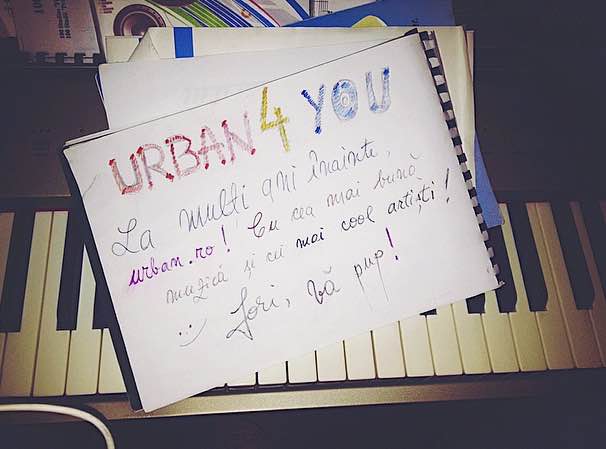 URBAN4 YOU
La mulți ani înainte,
urban.ro! Cu cea mai bună
muzică și cu mai cool artiști!
:) Jori, Vă pup!